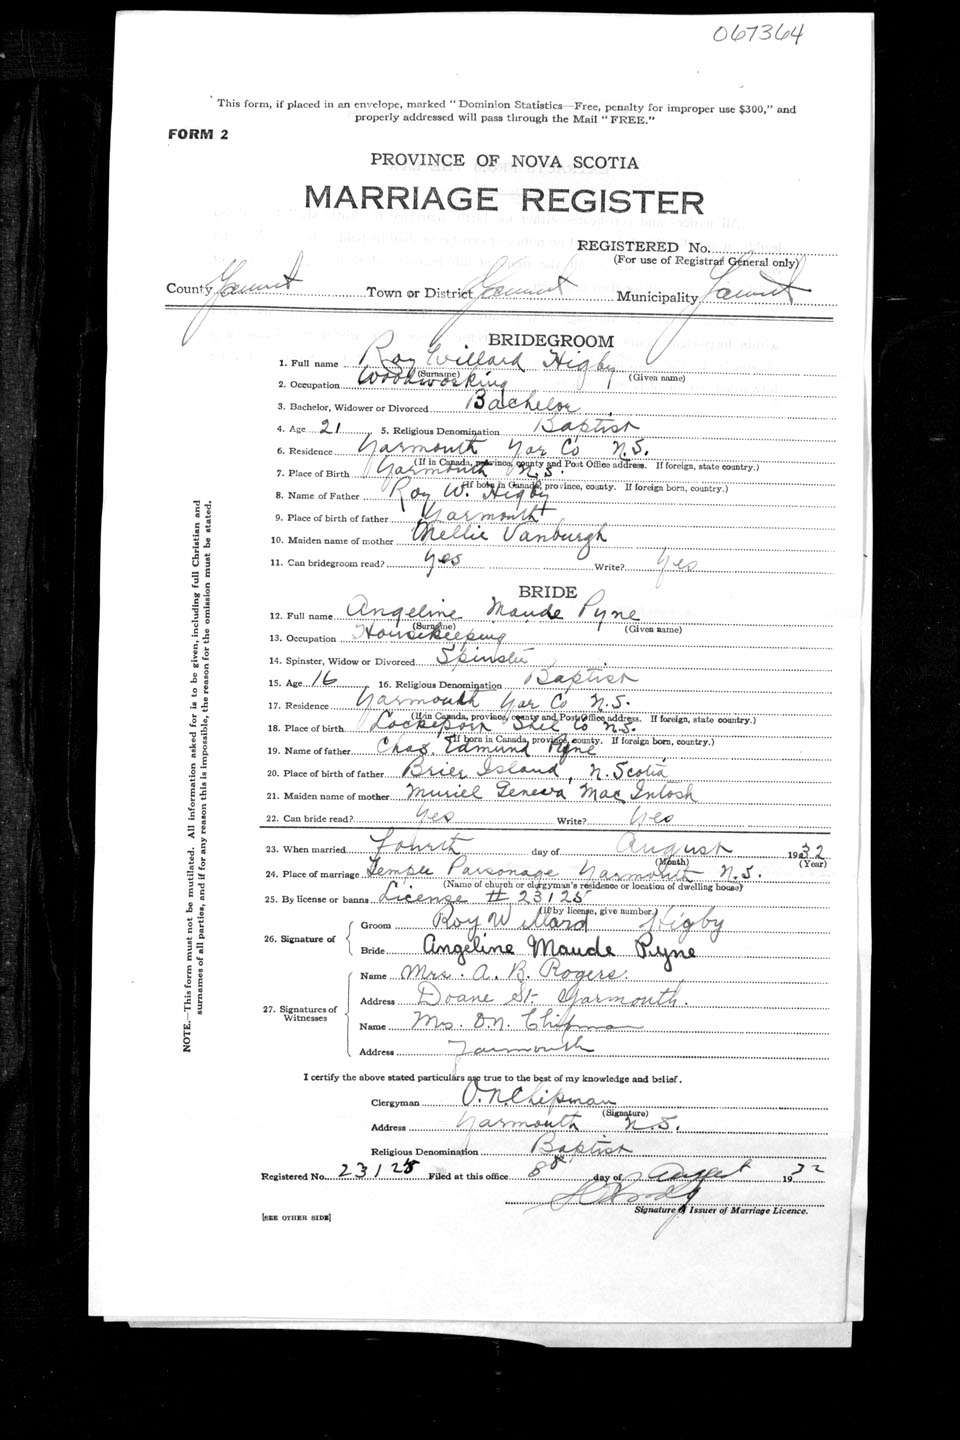 067364
This form, if placed in an envelope, marked "Dominion Statistics—Free, penalty for improper use $300," and
properly addressed will pass through the Mail "FREE."
FORM 2
PROVINCE OF NOVA SCOTIA
MARRIAGE REGISTER
REGISTERED No.
(For use of Registrar General only)
County Town or District Municipality
BRIDEGROOM
1. Full name Roy Willard Higby
(Surname) (Given name)
2. Occupation Woodworking
3. Bachelor, Widower or Divorced Bachelor
4. Age 21 5. Religious Denomination Baptist
6. Residence Yarmouth Yar Co N.S.
(If in Canada, province, county and Post Office address. If foreign, state country.)
7. Place of Birth Yarmouth N.S.
(If born in Canada, province, county. If foreign born, country.)
8. Name of Father Roy W. Higby
9. Place of birth of father Yarmouth
10. Maiden name of mother Nellie Vanburgh
11. Can bridegroom read? Yes Write? Yes
BRIDE
12. Full name Angeline Maude Pyne
(Surname) (Given name)
13. Occupation Housekeeping
14. Spinster, Widow or Divorced Spinster
15. Age 16 16. Religious Denomination Baptist
17. Residence Yarmouth Yar Co N.S.
(If in Canada, province, county and Post Office address. If foreign, state country.)
18. Place of birth Lockeport Shel Co N.S.
(If born in Canada, province, county. If foreign born, country.)
19. Name of father Chas. Edmund Pyne
20. Place of birth of father Brier Island, N. Scotia
21. Maiden name of mother Muriel Geneva MacIntosh
22. Can bride read? Yes Write? Yes
23. When married Fourth day of August 1932
(Month) (Year)
24. Place of marriage Temple Parsonage Yarmouth N.S.
(Name of church or clergyman's residence or location of dwelling house)
25. By license or banns License # 23128
(If by license, give number.)
26. Signature of
Groom Roy Willard Higby
Bride Angeline Maude Pyne
27. Signatures of Witnesses
Name Mrs. A. B. Rogers.
Address Doane St- Yarmouth.
Name Mrs. O.N. Chipman
Address Yarmouth
I certify the above stated particulars are true to the best of my knowledge and belief.
Clergyman O.N. Chipman
(Signature)
Address Yarmouth N.S.
Religious Denomination Baptist
Registered No. 23128 Filed at this office 8th day of August 1932
Signature of Issuer of Marriage Licence.
[SEE OTHER SIDE]
NOTE.—This form must not be mutilated. All information asked for is to be given including full Christian and
surnames of all parties, and if for any reason this is impossible, the reason for the omission must be stated.